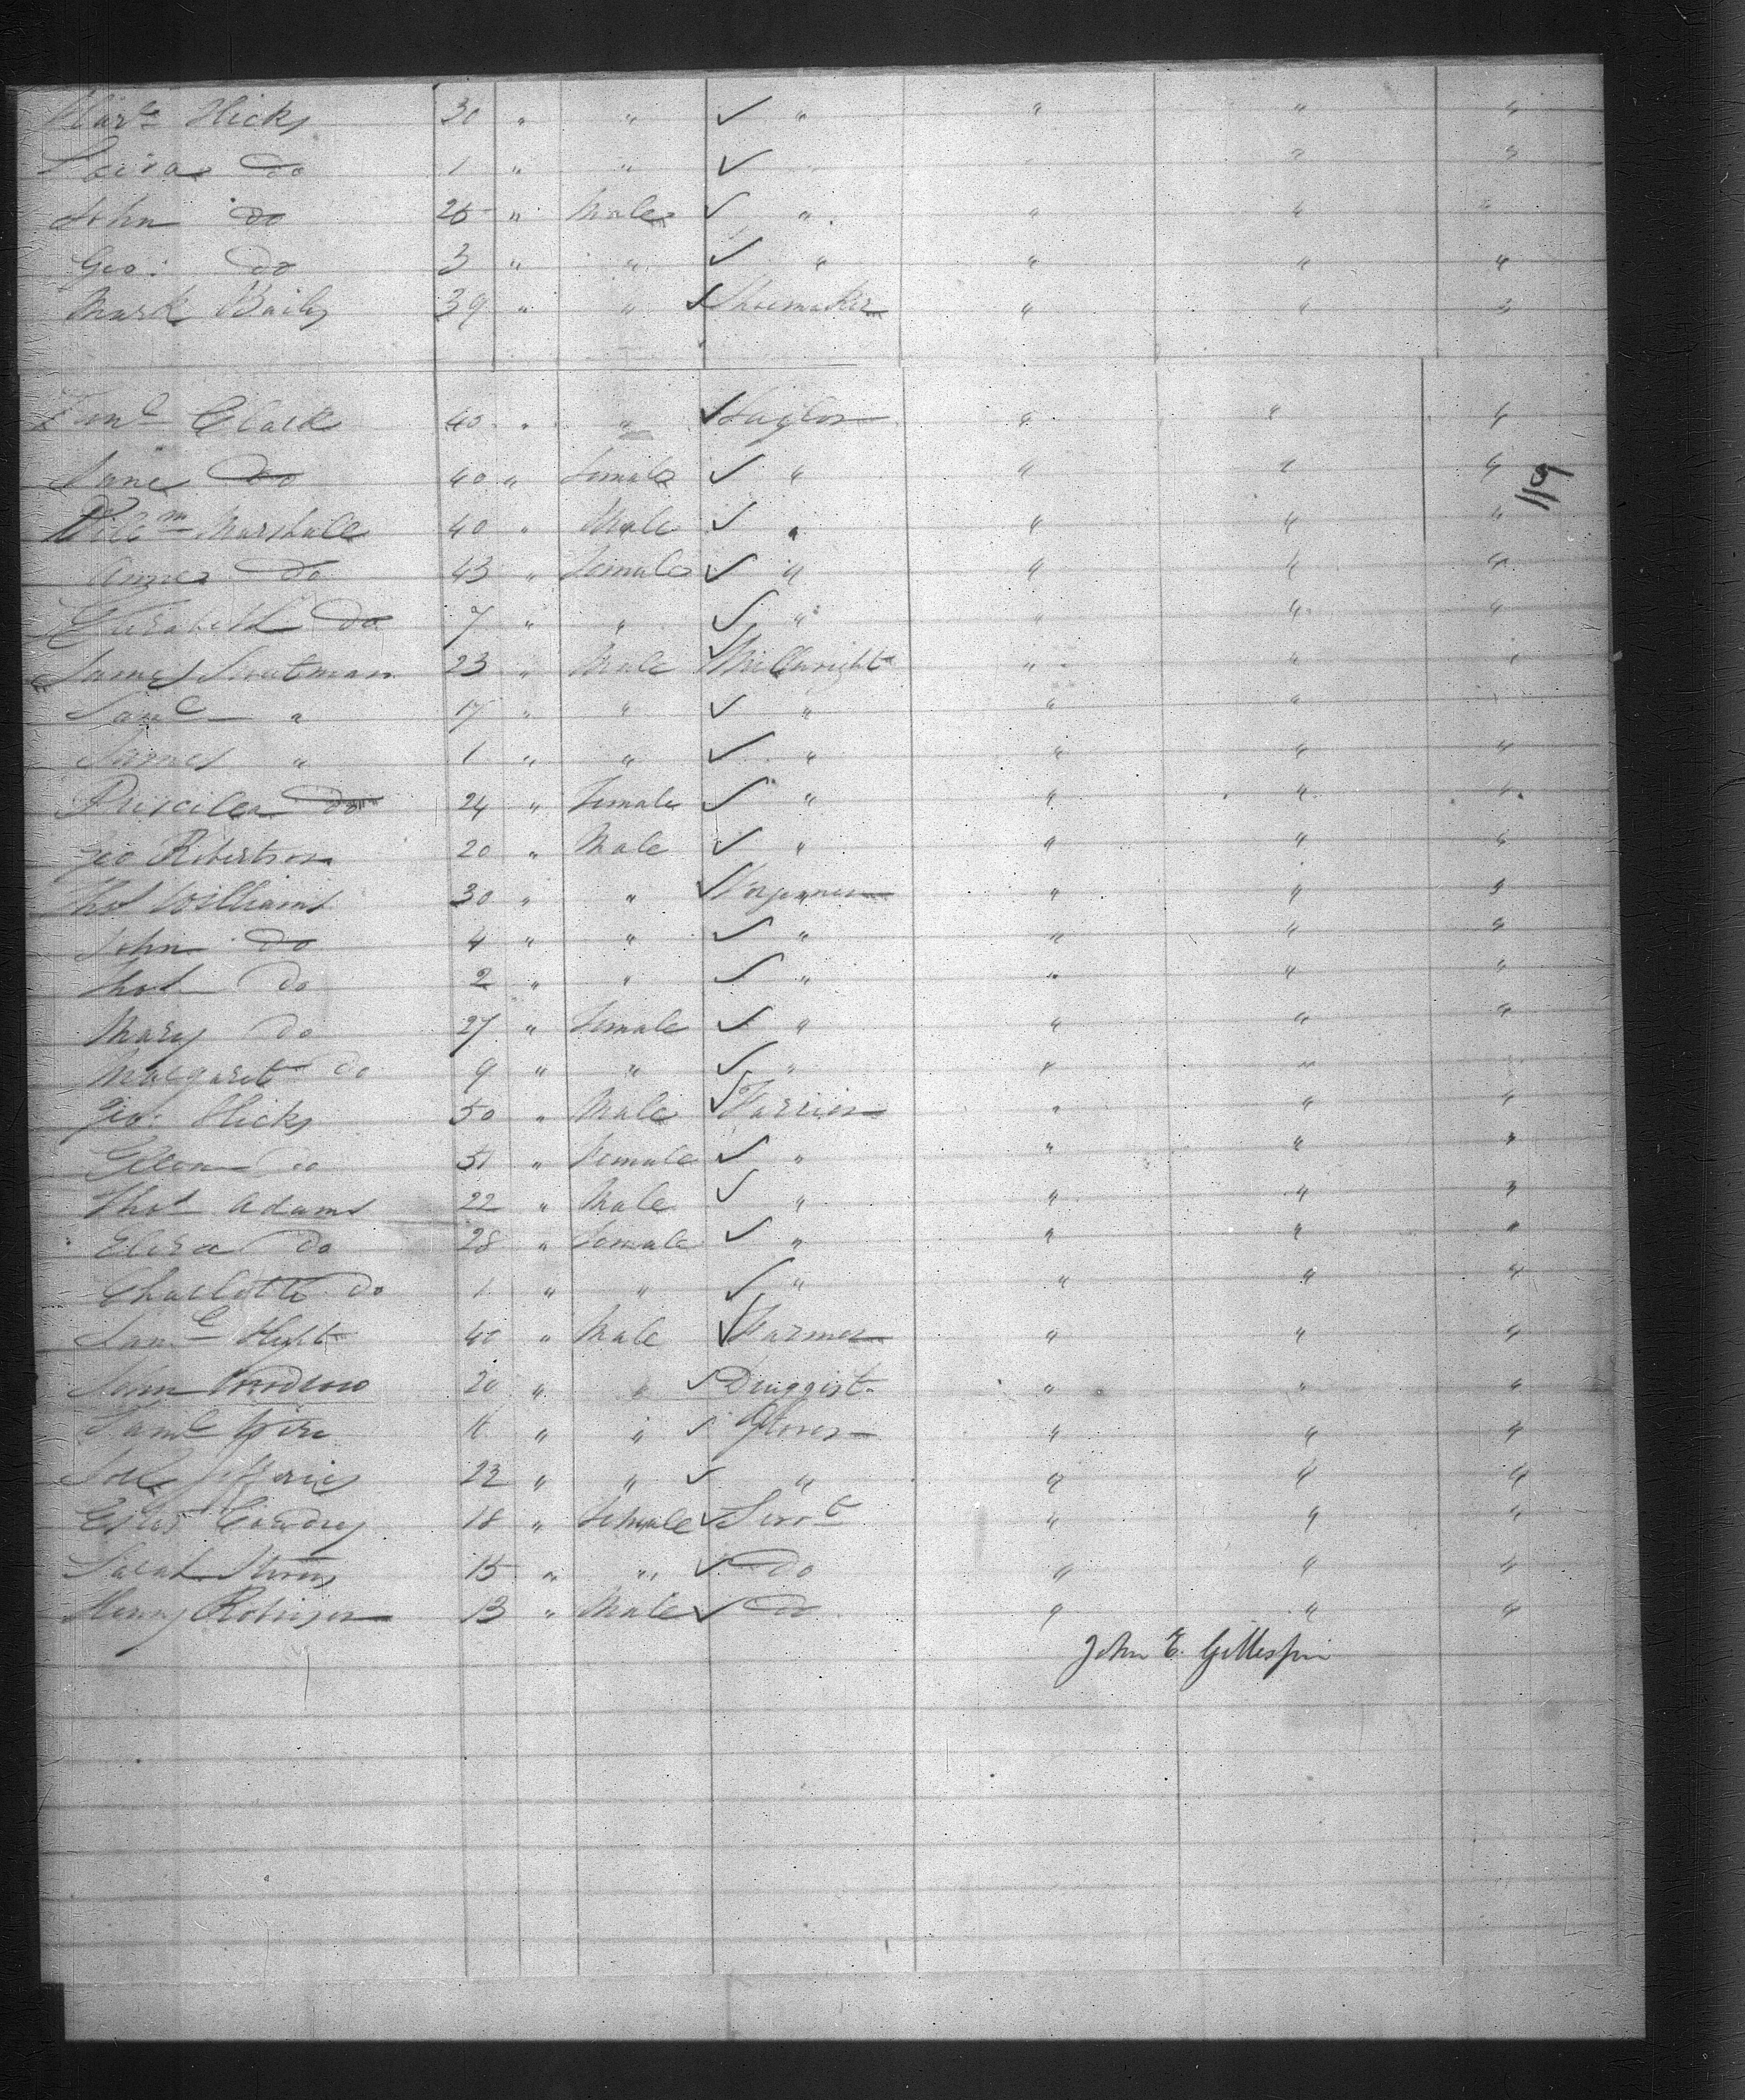 Hicks 30 " " ✓ " " " "
do 1 " " ✓ " "
John do 25 " Male ✓ " " " "
Geo: do 3 " " ✓ " " " "
Mark Baily 39 " " ✓ Shoemaker " " "
Clark 40 " " ✓ " " "
Jane do 40 " Female ✓ " " " "
Will^m Marshall 40 " Male ✓ " " " "
do 43 " Female ✓ " " " "
Elizabeth do 7 " " ✓ " " " "
James 23 " Male ✓ Millwright " " "
Sam^l " 17 " " ✓ " " "
James " 1 " " ✓ " " " "
Priscilla do 24 " Female ✓ " " " "
Geo Robertson 20 " Male ✓ " " " "
Thos Williams 30 " " ✓ " " "
John do 4 " " ✓ " " " "
Thos do 2 " " ✓ " " " "
Mary do 27 " Female ✓ " " " "
Margaret do 9 " " ✓ " " " "
Geo: Hicks 50 " Male ✓ Farrier " " "
Ellen do 51 " Female ✓ " " " "
Thos Adams 22 " Male ✓ " " " "
Eliza do 28 " Female ✓ " " " "
Charlotte do 1 " " ✓ " " " "
Sam^l 40 " Male ✓ Farmer " " "
20 " " ✓ Druggist " " "
Sam^l " " ✓ Glover " " "
Jefferies 22 " " ✓ " " " "
18 " Female ✓ Serv^t " " "
Sarah 15 " " ✓ do " " "
Henry Robinson 13 " Male ✓ do " " "
John E. Gillespie
119